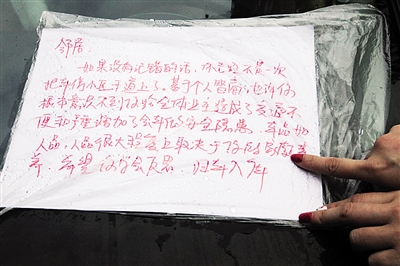 邻居：
如果没有记错的话，你已经不是一次
把车停小区干道上了。基于个人皆商，也许你
根本意识不到你给全体业主造成了交通不
便和严重增加了会车的安全隐患，车品如
人品，人品很大程度上取决于存的高的素
养，希望你学会反思，归车入库